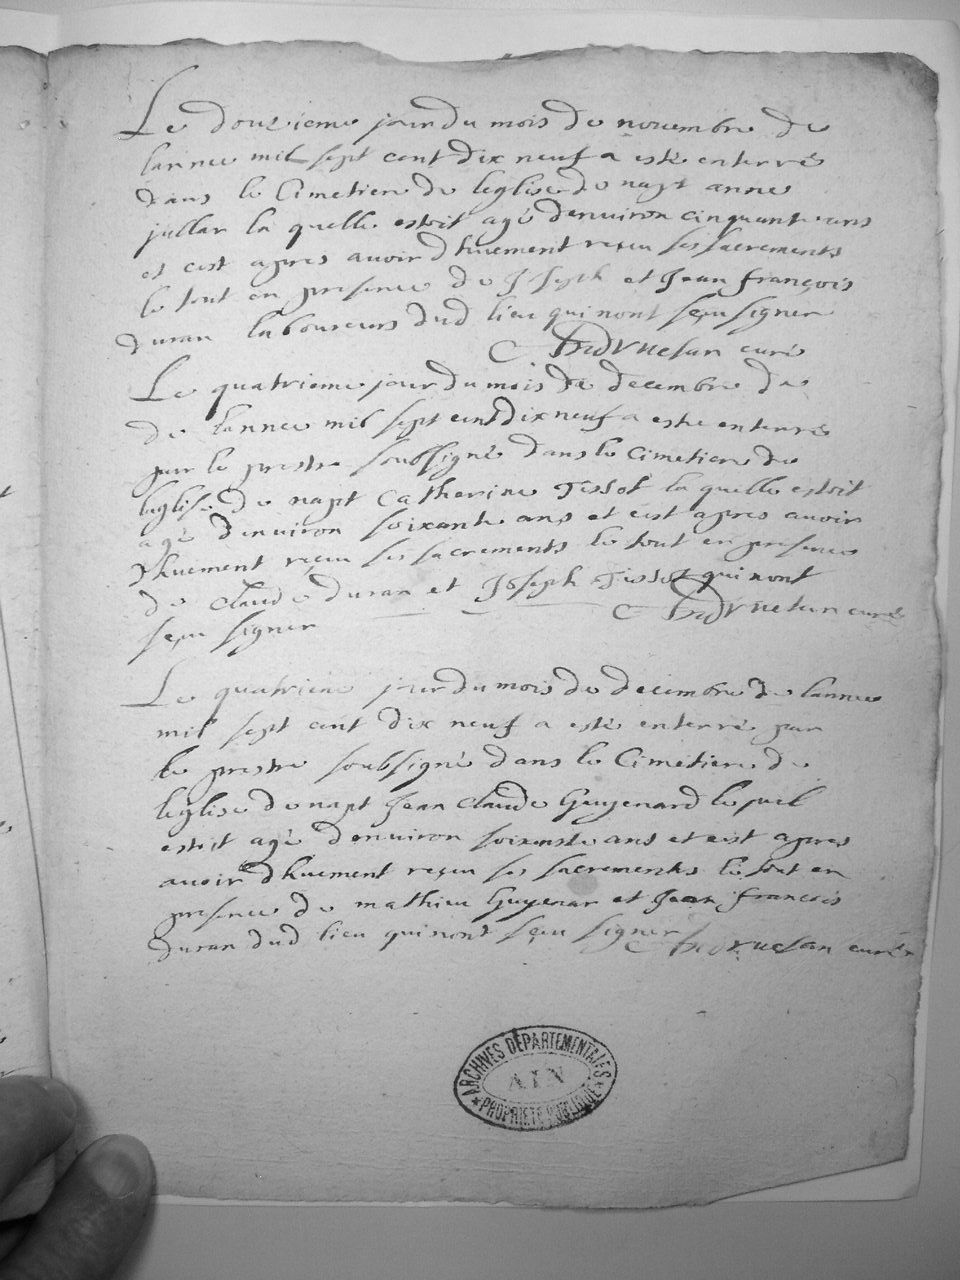 Le douzieme jour du mois de novembre de
lannee mil sept cent dix neuf a esté enterré
dans le Cimetiere de leglise de napt anne
jullar la quelle estoit agé denviron cinquante ans
et cest apres avoir dhuement reçeu ses sacrements
le tout en presence de Joseph et Jean françois
duran laboureurs dud lieu qui nont sçeu signer
curé
Le quatrieme jour du mois de decembre de
de lannee mil sept cent dix neuf a esté enterré
par le prestre soubsigné dans le Cimetiere de
leglise de napt Catherine Tissot la quelle estoit
agé denviron soixante ans et cest apres avoir
dhuement reçeu ses sacrements le tout en presence
de claude duran et Joseph Tissot qui nont
sçeu signer curé
Le quatrieme jour du mois de decembre de lannee
mil sept cent dix neuf a esté enterré par
le prestre soubsigné dans le Cimetiere de
leglise de napt Jean Claude Guyenard lequel
estoit agé denviron soixante ans et cest apres
avoir dhuement reçeu ses sacrements le tout en
presence de mathieu Guyenar et Jean francois
duran dud lieu qui nont sçeu signer curé
ARCHIVES DÉPARTEMENTALES
AIN
PROPRIÉTÉ PUBLIQUE